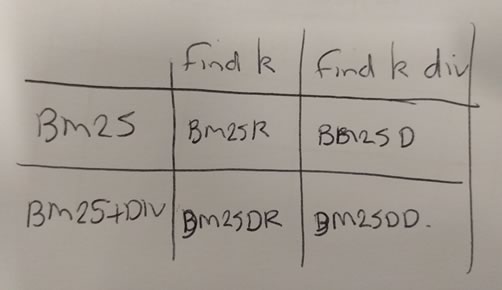 Find k Find k div
Bm25 Bm25R BBm25D
Bm25+Div Bm25DR Bm25DD.